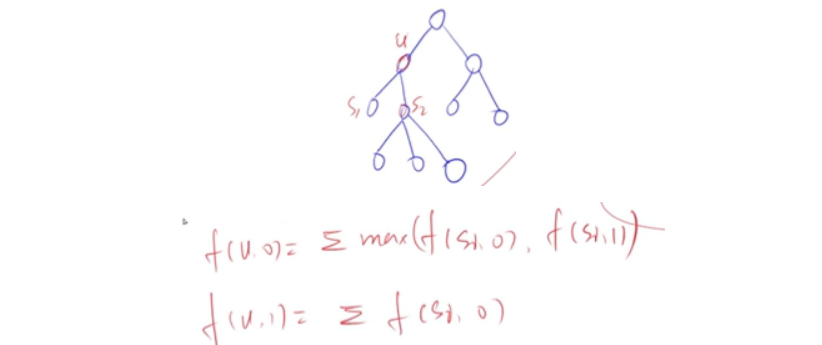 u
S₁ S₂
f(u,0)= Σ max(f(Si,0), f(Si,1))
f(u,1)= Σ f(Si,0)